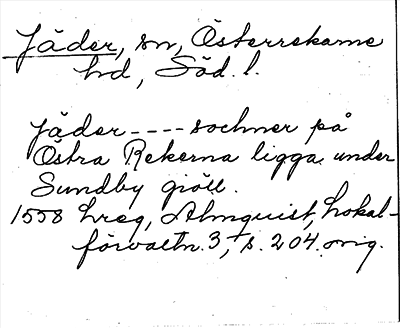 Jäder, sn, Österrekarne
hd, Söd. l.
Jäder ---- sochner på
Östra Rekerna ligga under
Sundby giöll.
1558 Lreg, Almquist, Lokal-
förvaltn. 3, s. 204. orig.